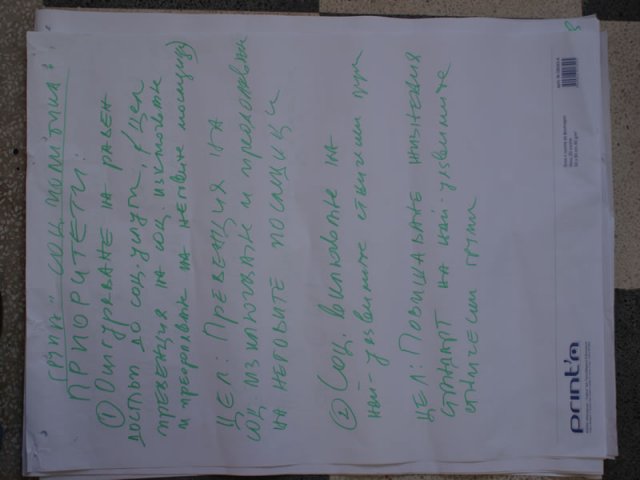 ГРУПА "СОЦ. ПОЛИТИКА"
ПРИОРИТЕТИ:
① Осигуряване на равен
достъп до соц. услуги, (цел
превенция на соц. изключване
и преодоляване на неговите последици)
ЦЕЛ: Превенция на
соц. изключване и преодоляване
на неговите последици
② Соц. включване на
най-уязвимите етнически групи
ЦЕЛ: Повишаване жизнения
стандарт на най-уязвимите
етнически групи
print'm